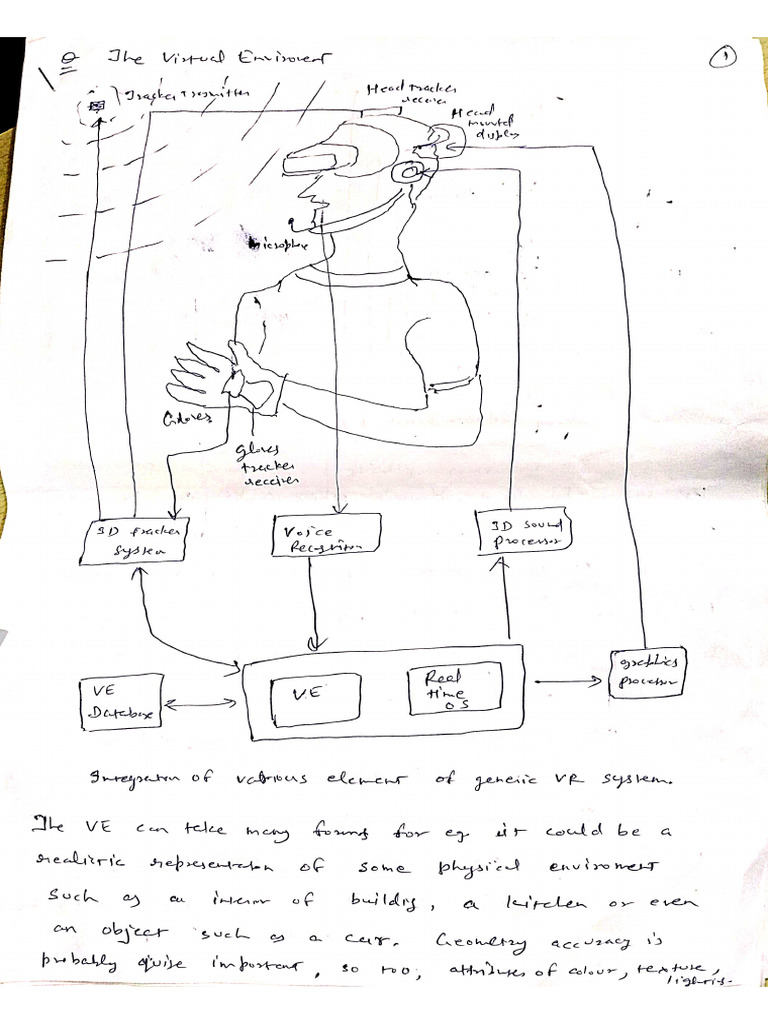 Q The Virtual Enviroment
1
Tracker Trasmitter
Head tracker
receiver
Head
mounted
display
microphone
Gloves
Gloves
tracker
receiver
3D tracker
System
Voice
Recognition
3D Sound
Processor
VE
Database
VE
Real
time
OS
graphics
processor
Integration of various element of generic VR system.
The VE can take many forms for eg. it could be a
realistic representation of some physical enviroment
Such as a interior of building, a kitchen or even
an object such as a car. Geometry accuracy is
probably quise important, so too, attributes of colour, texture,
lighting.